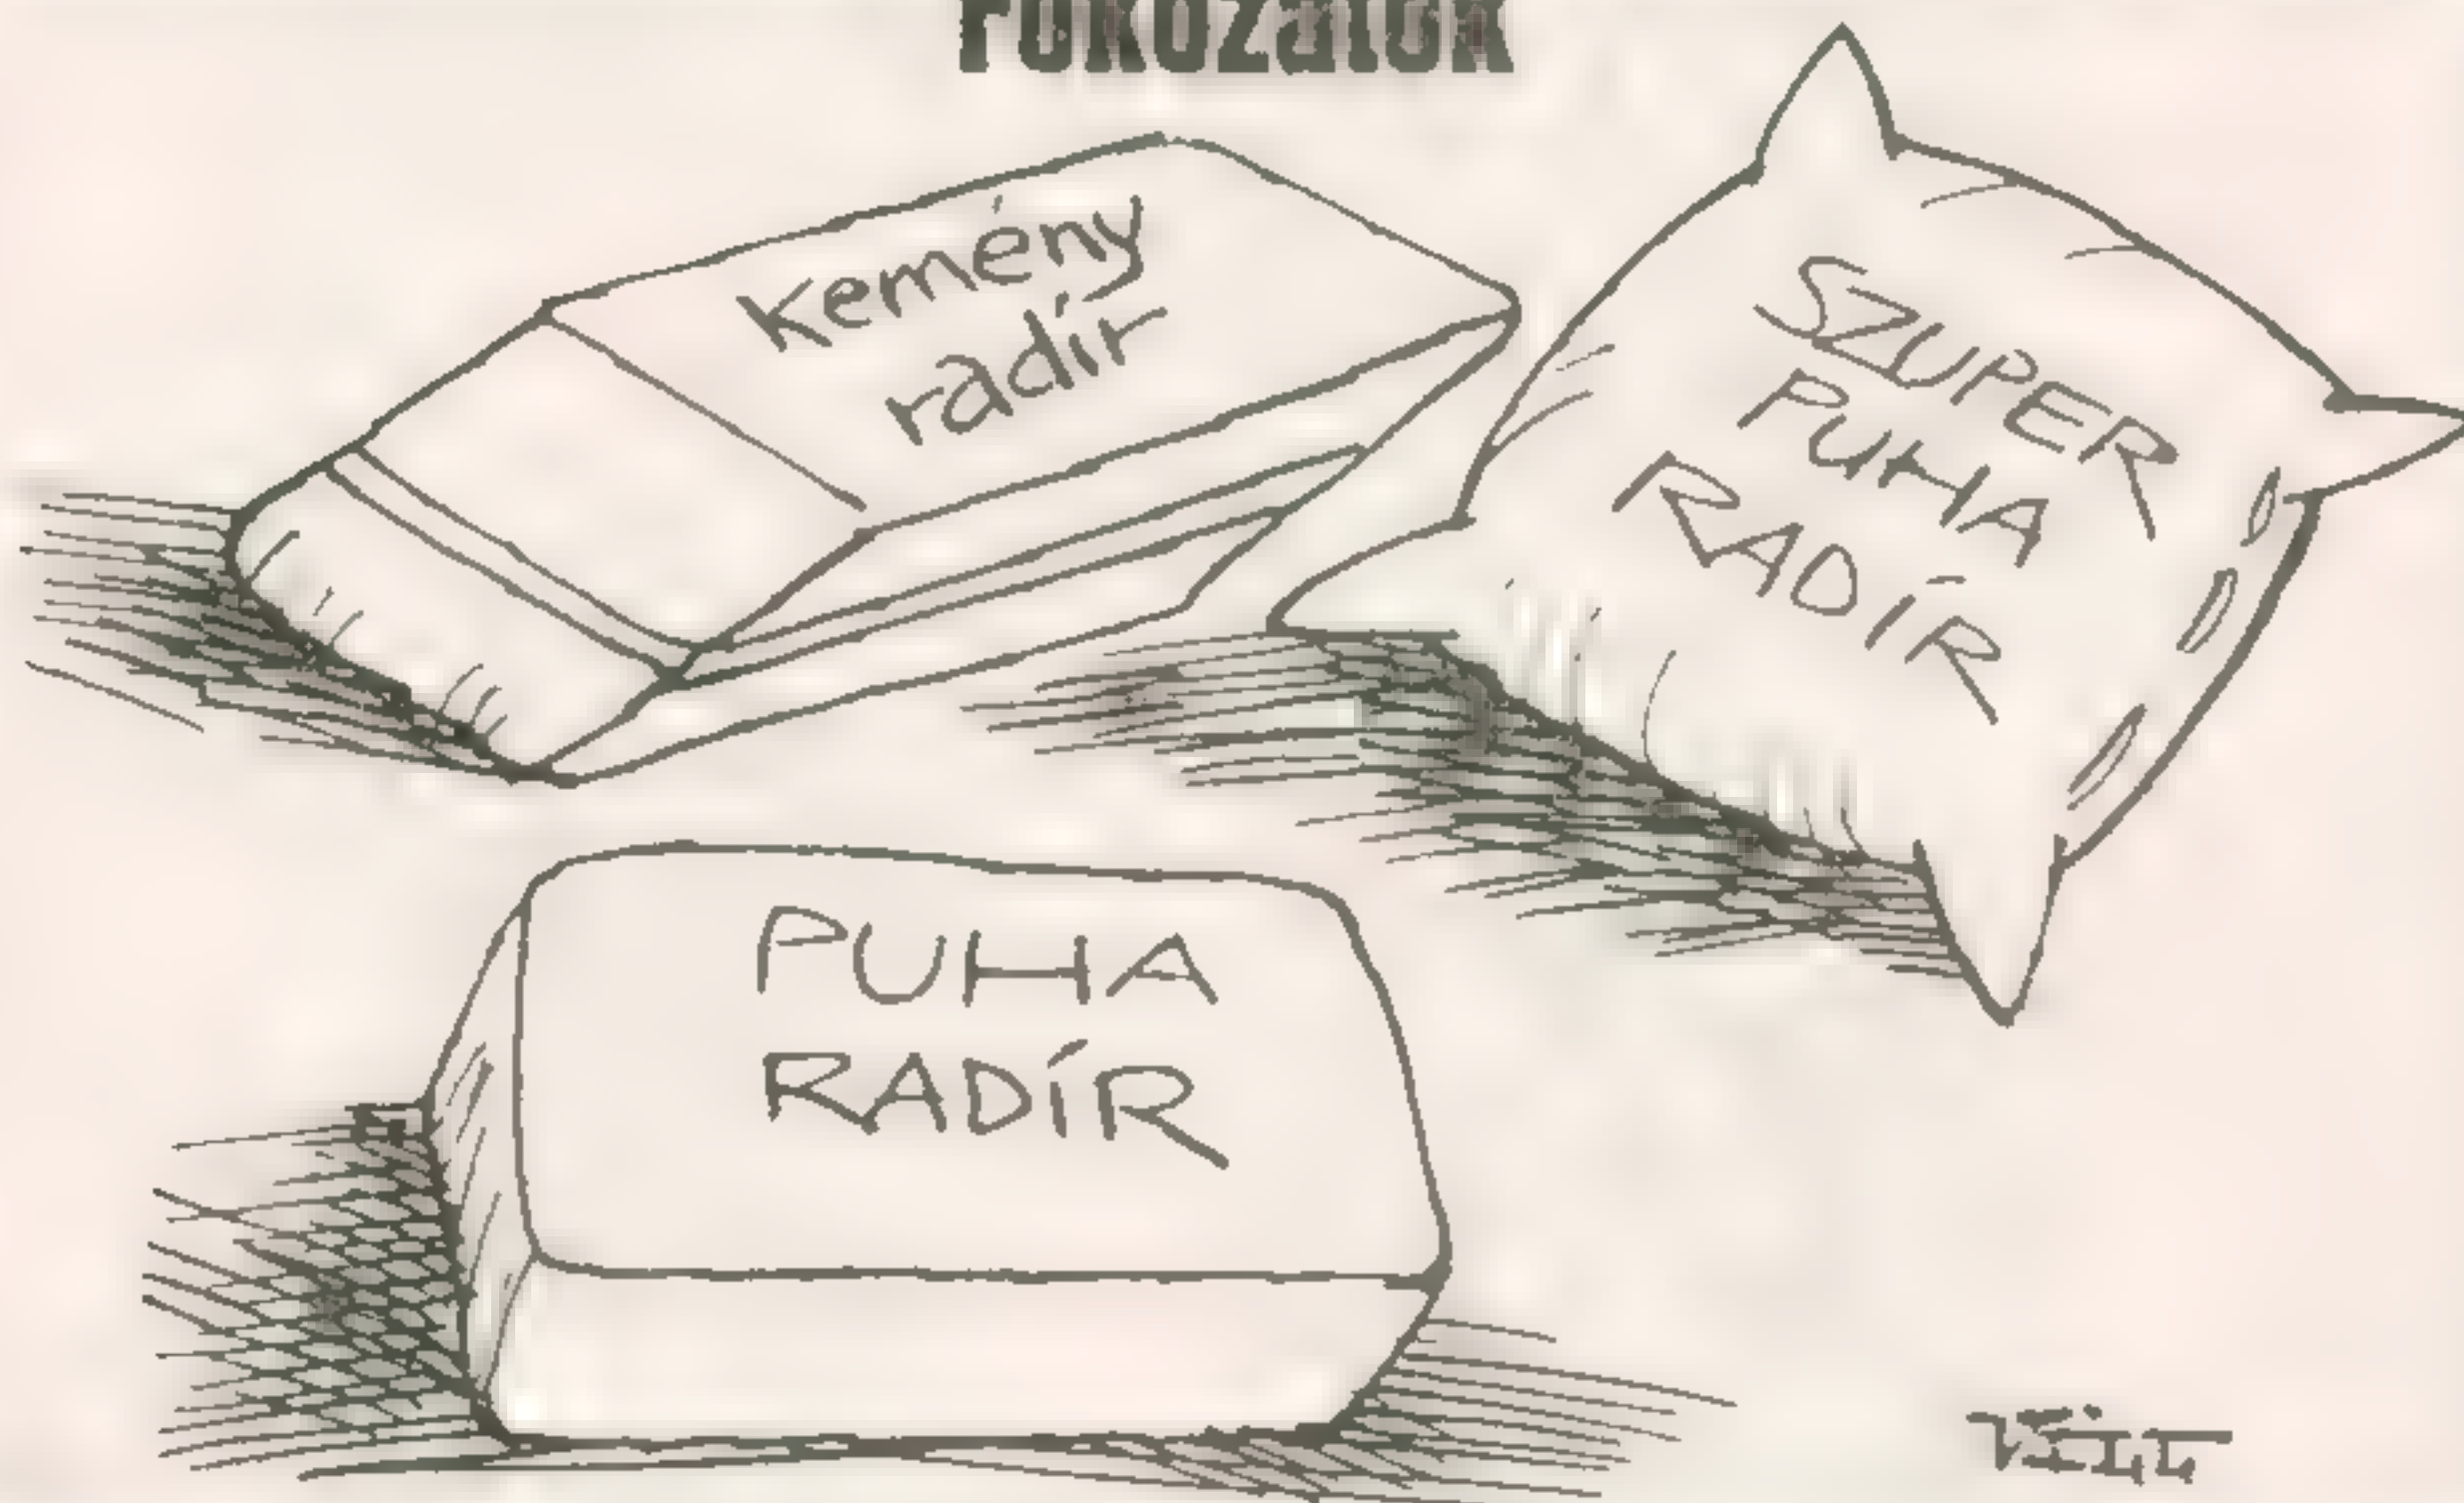 Fokozatok
Kemény
radír
SZUPER
PUHA
RADÍR
PUHA
RADÍR